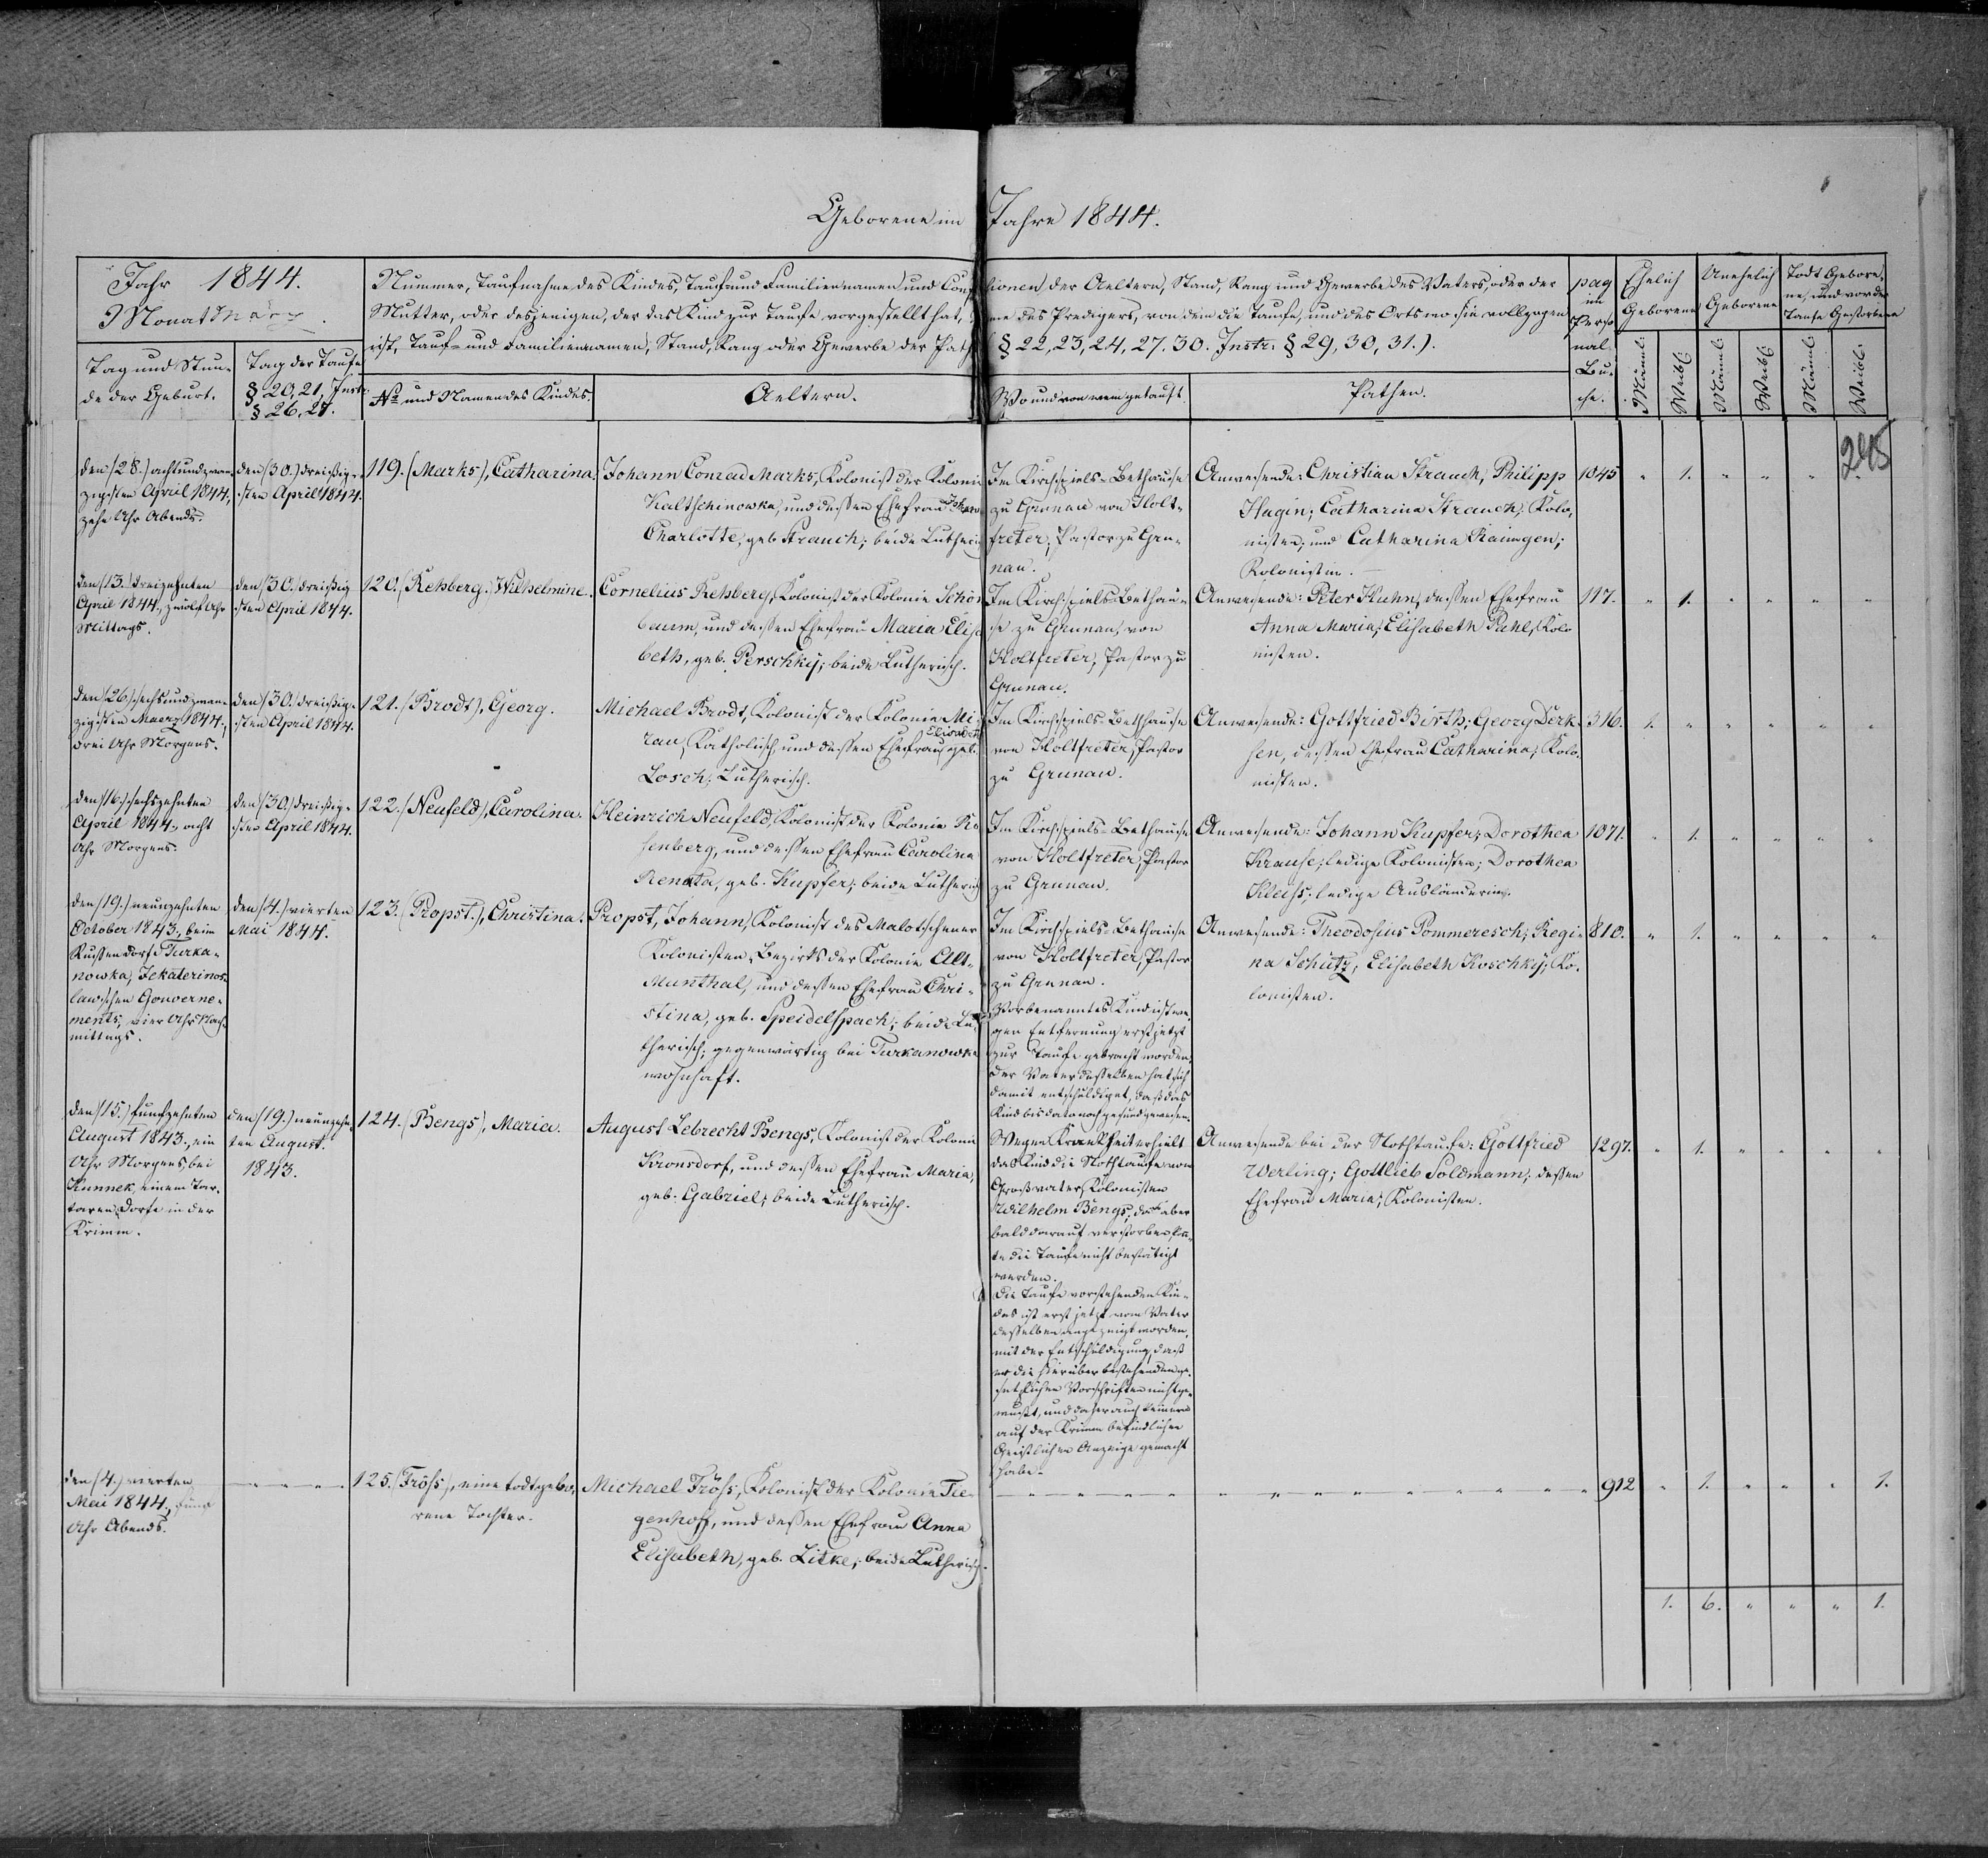 Geborene im Jahre 1844.
Jahr 1844.
Monat März.
Tag und Stun-
de der Geburt.
Tag der Taufe
§ 20, 21, Instr.
§ 26, 27.
Nummer, Taufnahme des Kindes, Tauf- und Familiennamen und Conf
Mutter, oder desjenigen, der das Kind zur Taufe vorgestellt hat,
ist, Tauf- und Familiennamen, Stand, Rang oder Gewerbe der Path
No und Namen des Kindes.
Aeltern.
sionen der Aeltern, Stand, Rang und Gewerbe des Vaters, oder der
me des Predigers, von dem die Taufe, und des Orts wo sie vollzogen
(§ 22, 23, 24, 27. 30. Instr. § 29, 30, 31.).
Wo und von wem getauft.
Pathen.
pag
im
Perso
nal-
Bu-
che.
Ehelich
Geborene
Unehelich
Geborene
Todt Gebore-
ne, und vor der
Taufe Gestorbene
Männl.
Weibl.
Männl.
Weibl.
Männl.
Weibl.
245
den (28.) achtundzwan-
zigsten April 1844,
zehn Uhr Abends.
den (30.) dreißig-
sten April 1844.
119. (Marks), Catharina.
Johann Conrad Marks, Kolonist der Kolonie
Kaltschinowka, und dessen Ehefrau
Charlotte, geb. Strauch; beide Lutherisch
Im Kirchspiels-Bethause
zu Grunau von Holt-
freter, Pastor zu Gru-
nau.
Anwesende: Christian Strauch, Philipp
Hagin; Catharina Strauch, Kolo-
nisten; und Catharina Raimgen;
Kolonistin.
1045 " 1. " " " "
den (13.) dreizehnten
April 1844., zwölf Uhr
Mittags.
den (30.) dreißig
sten April 1844.
120. (Rehberg.) Wilhelmine.
Cornelius Rehberg, Kolonist der Kolonie Schön
baum, und dessen Ehefrau Maria Elisa
beth, geb. Perschky; beide Lutherisch.
Im Kirchspiels-Bethau-
se zu Grunau, von
Holtfreter, Pastor zu
Grunau.
Anwesende: Peter Huhn, dessen Ehefrau
Anna Maria; Elisabeth Pahl, Kolo
nisten.
117. " 1. " " " "
den (26.) sechsundzwan-
zigsten Maerz 1844.,
drei Uhr Morgens.
den (30.) dreißig-
sten April 1844.
121. (Brodt), Georg.
Michael Brodt, Kolonist der Kolonie Mi-
rau, Katholisch und dessen Ehefrau Elisabeth geb.
Losch; Lutherisch.
Im Kirchspiels-Bethause
von Holtfreter, Pastor
zu Grunau.
Anwesende: Gottfried Birth; Georg Derk-
sen, dessen Ehefrau Catharina; Kolo-
nisten.
316. 1. " " " " "
den (16.) sechszehnten
April 1844., acht
Uhr Morgens.
den (30.) dreißig-
sten April 1844.
122. (Neufeld), Carolina.
Heinrich Neufeld, Kolonist der Kolonie Ro
senberg, und dessen Ehefrau Carolina
Renata, geb. Kupfer; beide Lutherisch
Im Kirchspiels-Bethause
von Holtfreter, Pastor
zu Grunau.
Anwesende: Johann Kupfer; Dorothea
Krause; ledige Kolonisten; Dorothea
ledige Ausländerin.
1071. " 1. " " " "
den (19.) neunzehnten
October 1843., beim
Russendorf Turka-
nowka, Jekaterinos-
lawschen Gouverne-
ments, vier Uhr Nach-
mittags.
den (4.) vierten
Mai 1844.
123. (Propst.), Christina.
Propst, Johann, Kolonist des Malotschener
Kolonisten-Bezirks der Kolonie Alt-
Munthal, und dessen Ehefrau Chri-
stina, geb. Speidelspach; beide Lu-
therisch; gegenwärtig bei Turkanowka
wohnhaft.
Im Kirchspiels-Bethause
von Holtfreter, Pastor
zu Grunau.
Vorbenanntes Kind ist we-
gen Entfernung erst jetzt
zur Taufe gebracht worden,
der Vater desselben hat sich
damit entschuldigt, daß das
Kind bis dato noch gesund gewesen.
Anwesende: Theodosius Pommeresch; Regi-
na Schütz; Elisabeth Koschky; Ko-
lonisten.
810. " 1. " " " "
den (15.) fünfzehnten
August 1843., ein
Uhr Morgens, bei
Kunnek, einem Tar-
taren Dorfe in der
Krimm.
den (19.) neunzehn-
ten August.
1843.
124. (Bengs), Maria.
August Lebrecht Bengs, Kolonist der Kolonie
Kronsdorf, und dessen Ehefrau Maria,
geb. Gabriel; beide Lutherisch.
Wegen Krankheit erhielt
das Kind die Nothtaufe vom
Großvater, Kolonisten
Wilhelm Bengs; da es aber
bald darauf verstorben konn-
te die Taufe nicht bestätigt
werden.
Die Taufe vorstehenden Kin-
des ist erst jetzt vom Vater
desselben angezeigt worden,
mit der Entschuldigung, daß
er die hierüber bestehenden ge-
setzlichen Vorschriften nicht ge-
wußt, und daher auch keinem
auf der Krimm befindlichen
Geistlichen Anzeige gemacht
habe.
Anwesende bei der Nothtaufe: Gottfried
Werling; Gottlieb Soldmann, dessen
Ehefrau Maria; Kolonisten.
1297. " 1. " " " "
den (4.) vierten
Mai 1844., fünf
Uhr Abends.
125. (Fröss), eine todtgebo-
rene Tochter.
Michael Fröss, Kolonist der Kolonie Tie-
genhoff, und dessen Ehefrau Anna
Elisabeth, geb. Litke; beide Lutherisch.
912 " 1. " " " 1.
1. 6. " " " 1.